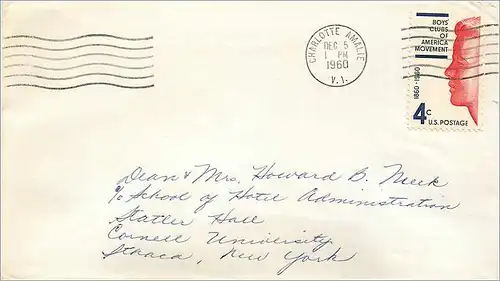 CHARLOTTE AMALIE
DEC 5
1 PM
1960
V.I.
BOYS
CLUBS
OF
AMERICA
MOVEMENT
1860-1960
4c
U.S. POSTAGE
Dean & Mrs. Howard B. Meek
c/o School of Hotel Administration
Statler Hall
Cornell University
Ithaca, New York